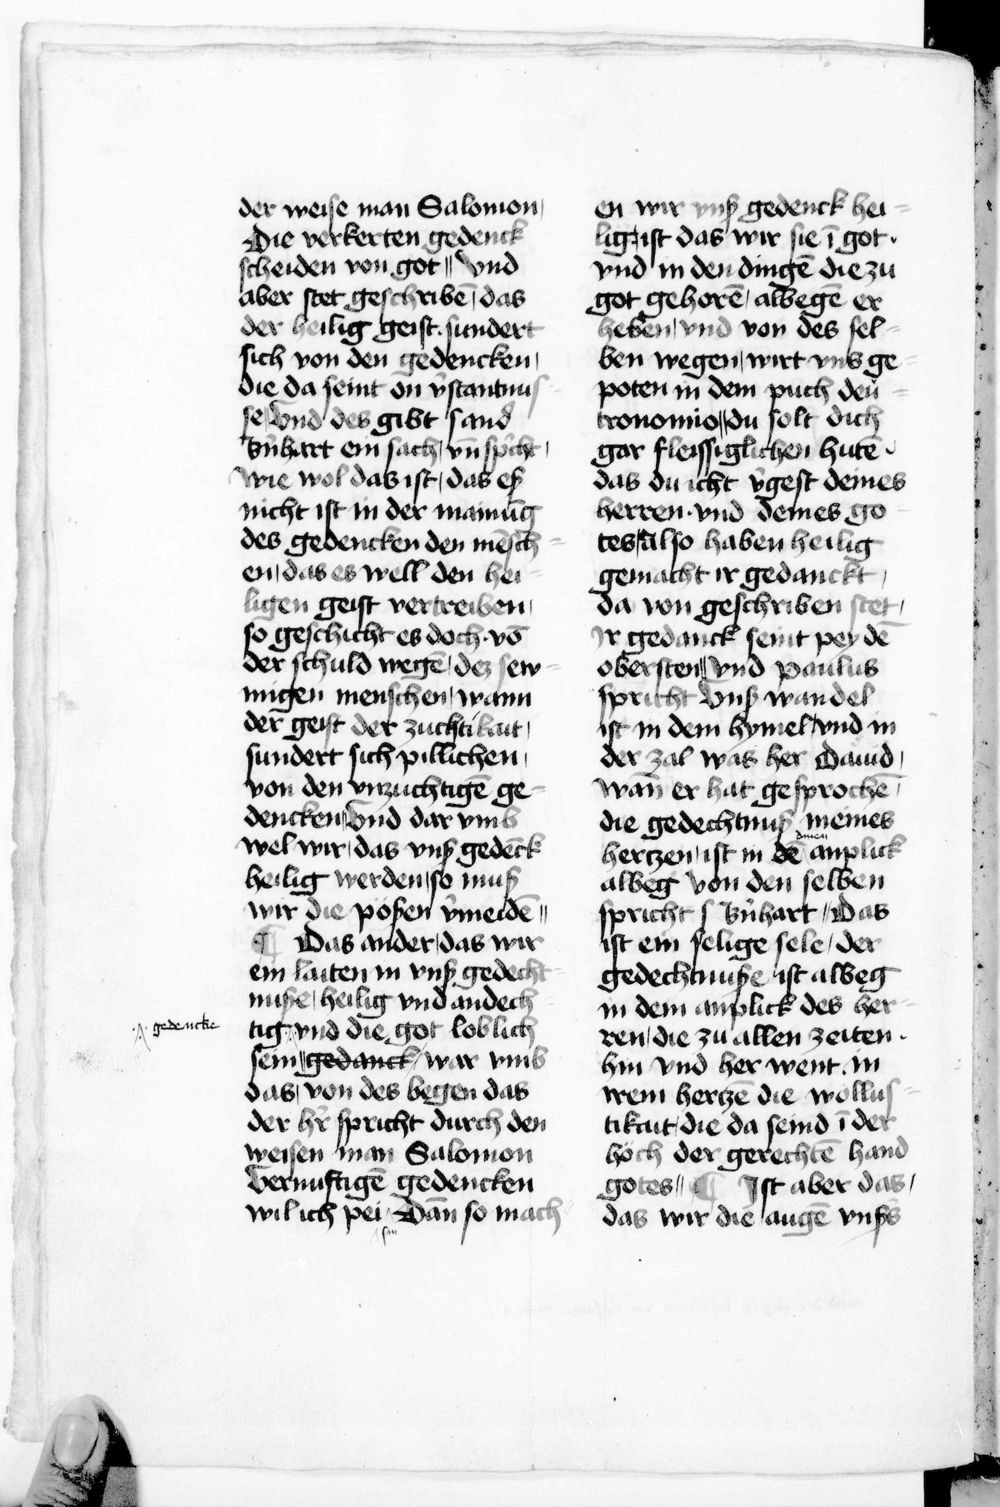 der weise man Salomon /
Die verkerten gedenck
scheiden von got // Vnd
aber stet geschribē / das
der heilig geist · sundert
sich von den gedencken /
die da seint on v̓stantnus-
se / Vnd des gibt sand
Bn̓hart ein sach / vn̄ sp̓cht /
wie wol das ist / das eß
nicht ist in der mainūg
des gedencken den mēsch=
en / das es well den hei=
ligen geist vertreiben /
so geschicht es doch · vō
der schuld wegē / dez sew=
migen menschen / wann
der geist der zuchtikait /
sundert sich pillichen /
von den vnzuchtigē ge=
dencken / Vnd dar vmb
wel wir / das vnß gedēck
heilig werden / so muß
wir die pößen v̓meidē //
¶ Das ander / das wir
ein laiten in vnß gedecht=
nuße / heilig vnd andech=
tig / vnd die got loblich
·A· gedencke
sein // gedanck / war vmb
das / von des wegen das
der hr̓ spricht durch den
weisen man Salomon
Vernuftigē gedencken
wil ich pei san Dān so mach=
en wir vnß gedenck hei=
lig / ist das wir sie ī got ·
vnd in den dingē die zu
got gehorē / albegē er
heben / vnd von des sel=
ben wegen / wirt vns ge=
poten in dem puch deu=
tronomio // du solt dich
gar fleissiglichen hutē ·
das du icht v̓gest deines
herren · vnd deines go=
tes / also haben heilig
gemacht ir gedanckt /
da von geschriben stet /
Ir gedanck seint pey dē
obersten // Vnd Paulus
spricht Vnß wandel
ist in dem hymel / vnd in
der zal was her Dauid /
wān er hat gesprochē /
die gedechtnuß meines
hertzen / ist in dē deinen anplick
albeg von den selben
spricht s Bn̓hart // Das
ist ein selige sele / der
gedechtnuße ist albeg
in dem anplick des her=
ren / die zu allen zeiten ·
hin vnd her went · in
irem hertzē die wollus=
tikait / die da seind ī der
hoch der gerechtē hand
gotes // ¶ Ist aber das /
das wir die augē vnßs̓